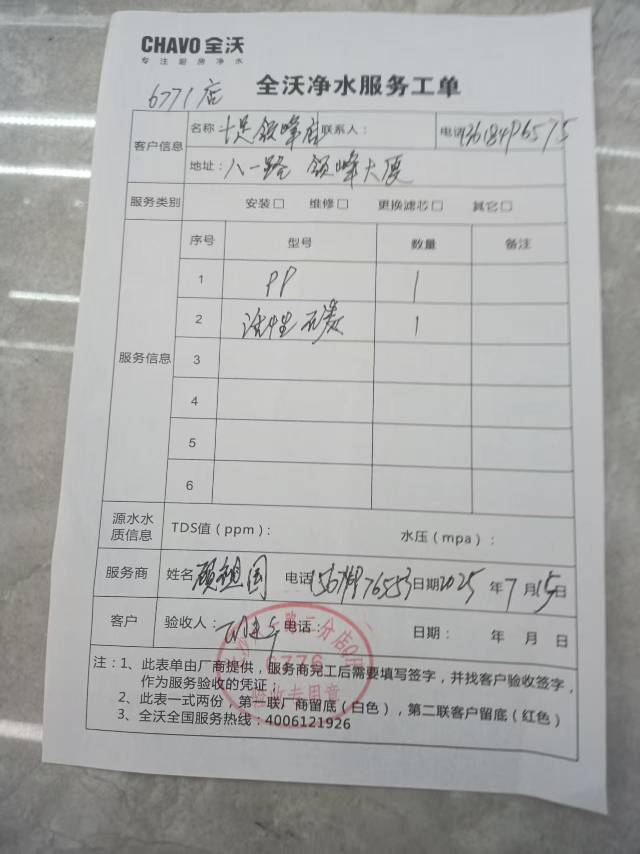 CHAVO 全沃
专注厨房净水
6771店
全沃净水服务工单
客户信息
名称 十足领峰店 联系人：
电话
地址：八一路 领峰大厦
服务类别 安装□ 维修□ 更换滤芯□ 其它□
服务信息
序号 型号 数量 备注
1 PP 1
2 活性碳 1
3
4
5
6
源水水质信息 TDS值（ppm）： 水压（mpa）：
服务商 姓名 顾祖国 电话 日期 2025 年 7 月 15 日
客户 验收人： 电话： 日期： 年 月 日
二分店
验收专用章
注：1、此表单由厂商提供，服务商完工后需要填写签字，并找客户验收签字，
作为服务验收的凭证；
2、此表一式两份，第一联厂商留底（白色），第二联客户留底（红色）
3、全沃全国服务热线：4006121926